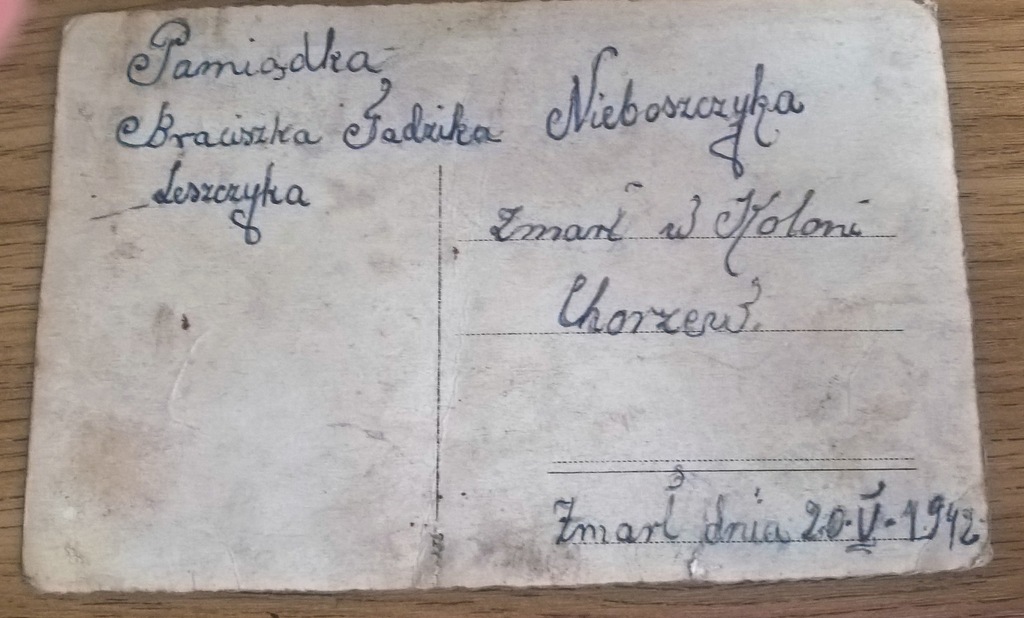 Pamiądka
Braciszka Tadzika Nieboszczyka
Leszczyka
Zmarł w Koloni
Chorzew.
Zmarł dnia 20.V.1942